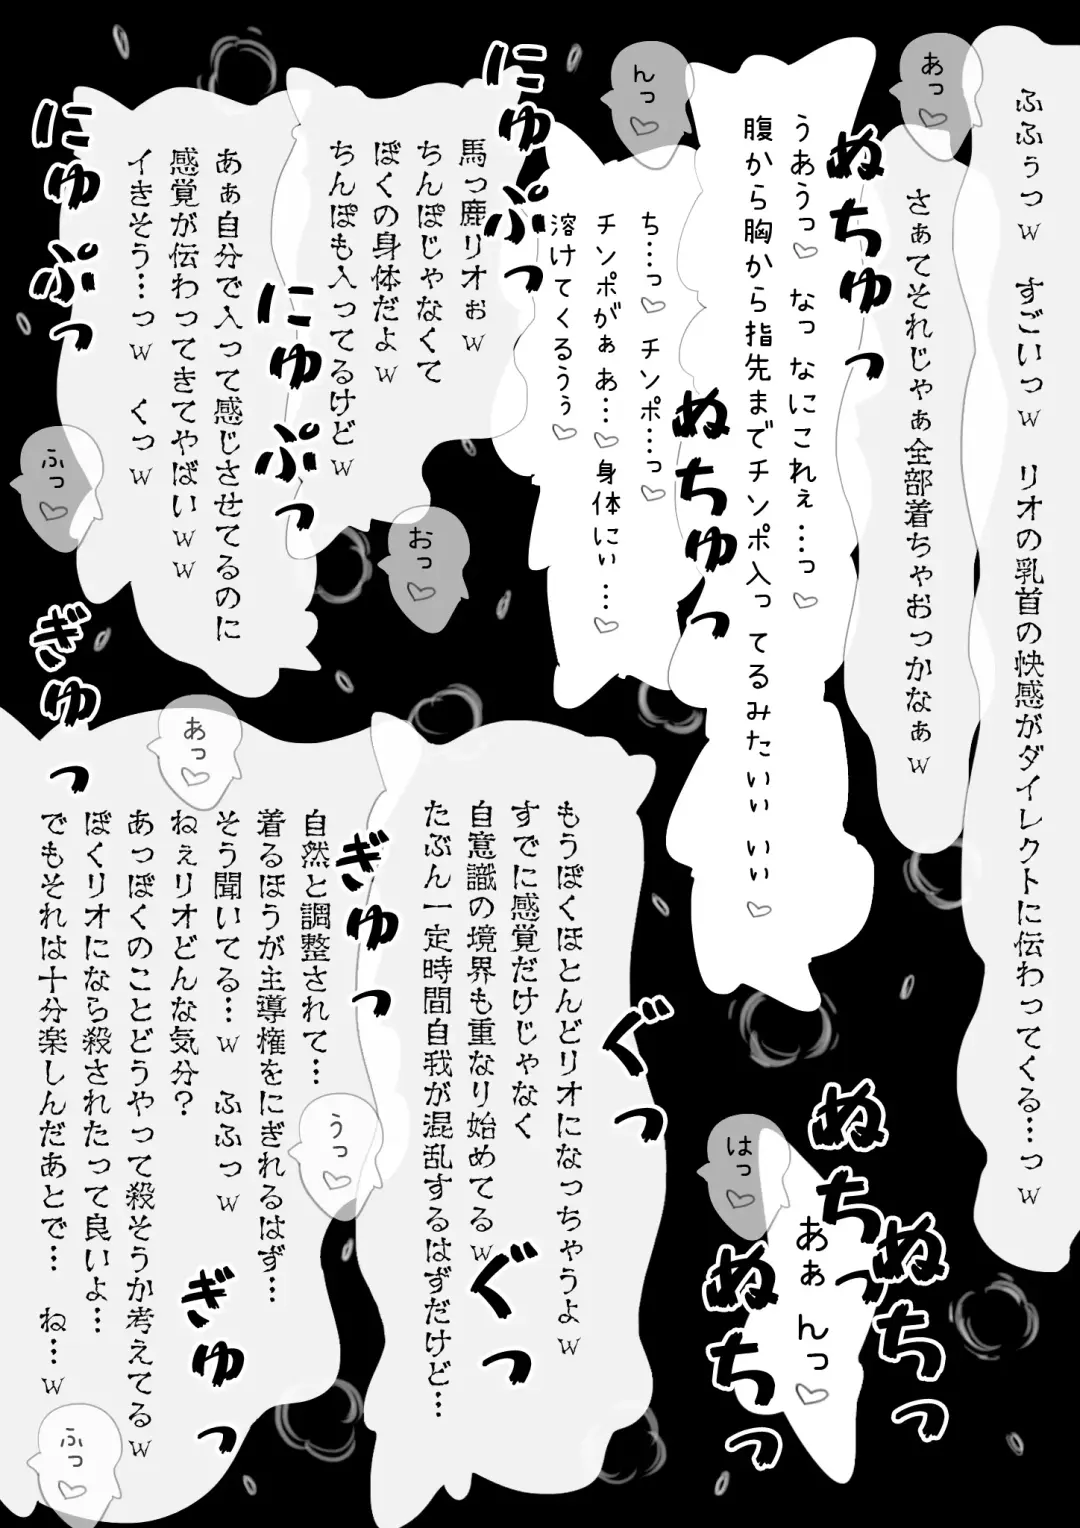 ふふぅっw　すごいっw　リオの乳首の快感がダイレクトに伝わってくる…っw
あっ♡
さぁてそれじゃぁ全部着ちゃおっかなぁw
ぬちゅっ
うあうっ♡　なっ なにこれぇ…っ♡
腹から胸から指先までチンポ入ってるみたいぃいぃ♡
んっ♡
ぬちゅっ
ち…っ♡ チンポ…っ♡
チンポがぁ あ…♡身体にぃ…♡
溶けてくるうぅ♡
にゅぷっ
馬っ鹿リオぉw
ちんぽじゃなくて
ぼくの身体だよw
ちんぽも入ってるけどw
おっ♡
にゅぷっ
あぁ自分で入って感じさせてるのに
感覚が伝わってきてやばいww
イきそう…っw　くっw
にゅぷっ
ふっ♡
ぬちゅっ
ぬちっ
ぬちっ
あぁんっ♡
はっ♡
ぐっ
もうぼくほとんどリオになっちゃうよw
すでに感覚だけじゃなく
自意識の境界も重なり始めてるw
たぶん一定時間自我が混乱するはずだけど…
ぐっ
ぎゅっ
うっ♡
自然と調整されて…
着るほうが主導権をにぎれるはず…
そう聞いてる…w　ふふっw
ねぇリオどんな気分？
あっぼくのことどうやって殺そうか考えてるw
ぼくリオになら殺されたって良いよ…
でもそれは十分楽しんだあとで…　ね…w
あっ♡
ぎゅっ
ぎゅっ
ふっ♡